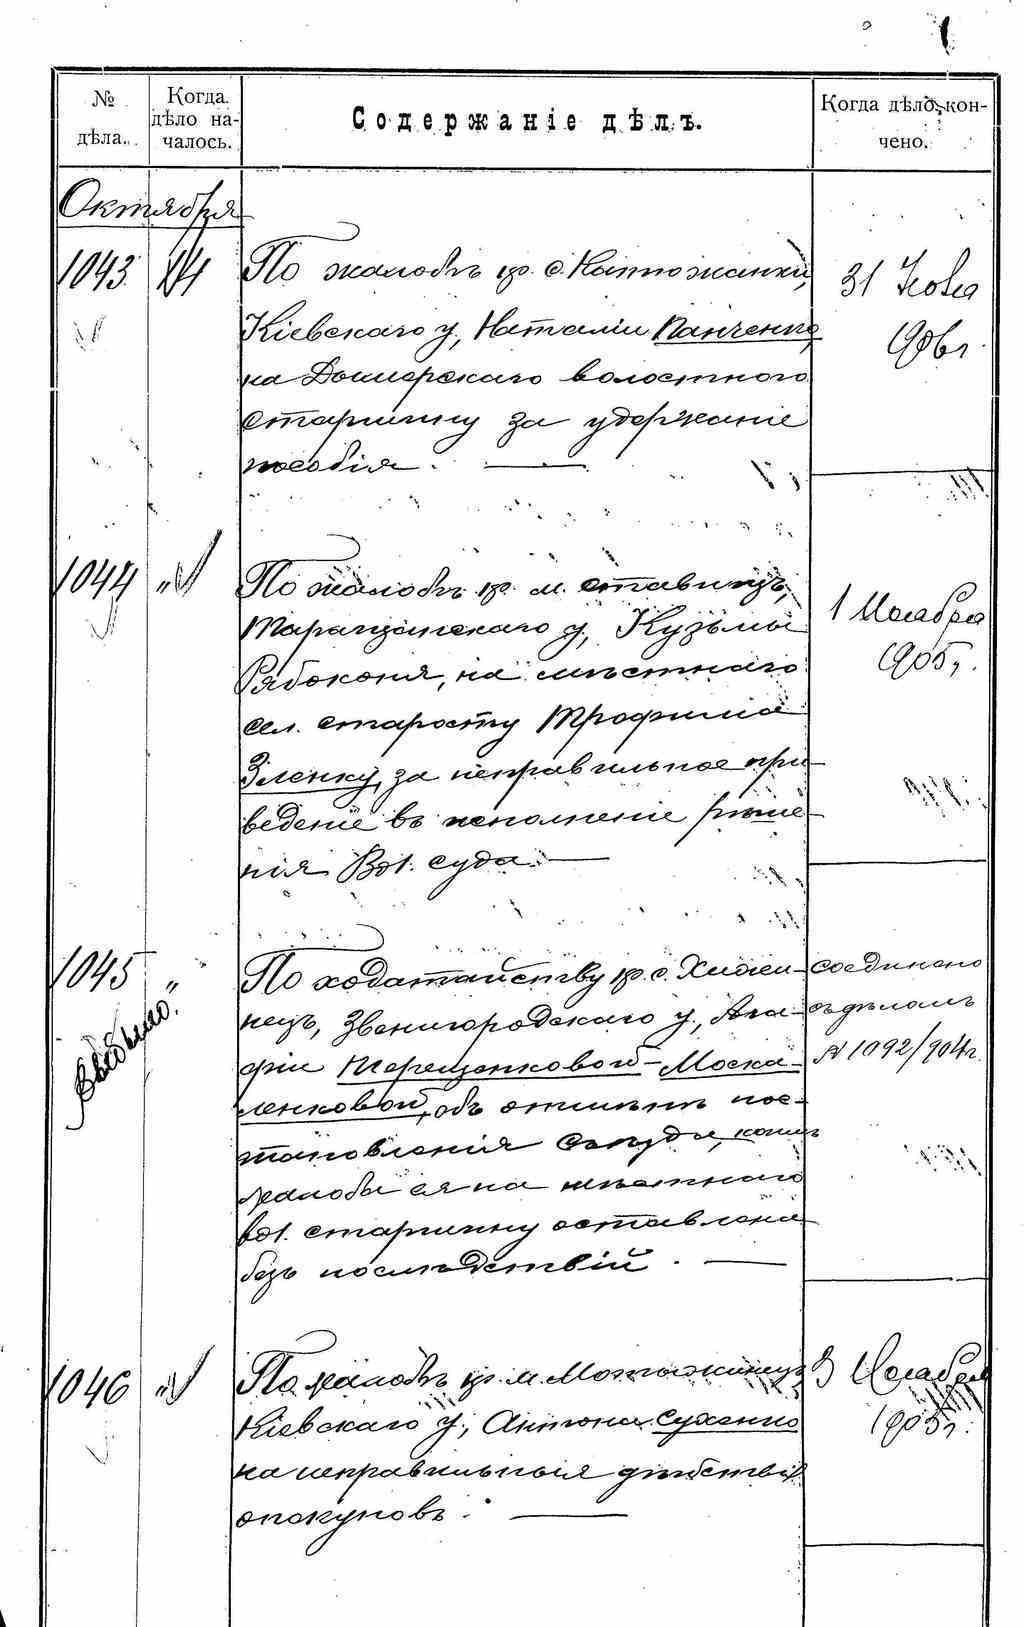 № дѣла.
Когда дѣло началось.
Содержаніе дѣлъ.
Когда дѣло кончено.
Октября
1043 14 По жалобѣ кр. с. Катюжанки,
Кіевскаго у, Наталіи Панченко,
на Дымерскаго волостного
старшину за удержаніе
пособія.
31
1906 г.
1044 " По жалобѣ кр. м. Ставищъ,
Таращанскаго у, Кузьмы
Рябоконя, на мѣстнаго
сел. старосту Трофима
Зленку, за неправильное при-
веденіе въ исполненіе рѣше-
нія Вол. суда.
1 Ноября
1905 г.
1045 " По ходатайству кр. с.
нецъ, Звенигородскаго у, Ага-
фіи Терещенковой-Моска-
ленковой, объ отмѣнѣ пос-
тановленія Съѣзда, коимъ
жалоба ея на мѣстнаго
вол. старшину оставлена
безъ послѣдствій.
соединено
съ дѣломъ
№ 1092/904 г.
1046 " По жалобѣ кр. м. Мотыжина,
Кіевскаго у, Антона Сухенко
на неправильныя дѣйствія
опекуновъ.
3 Ноября
1905 г.